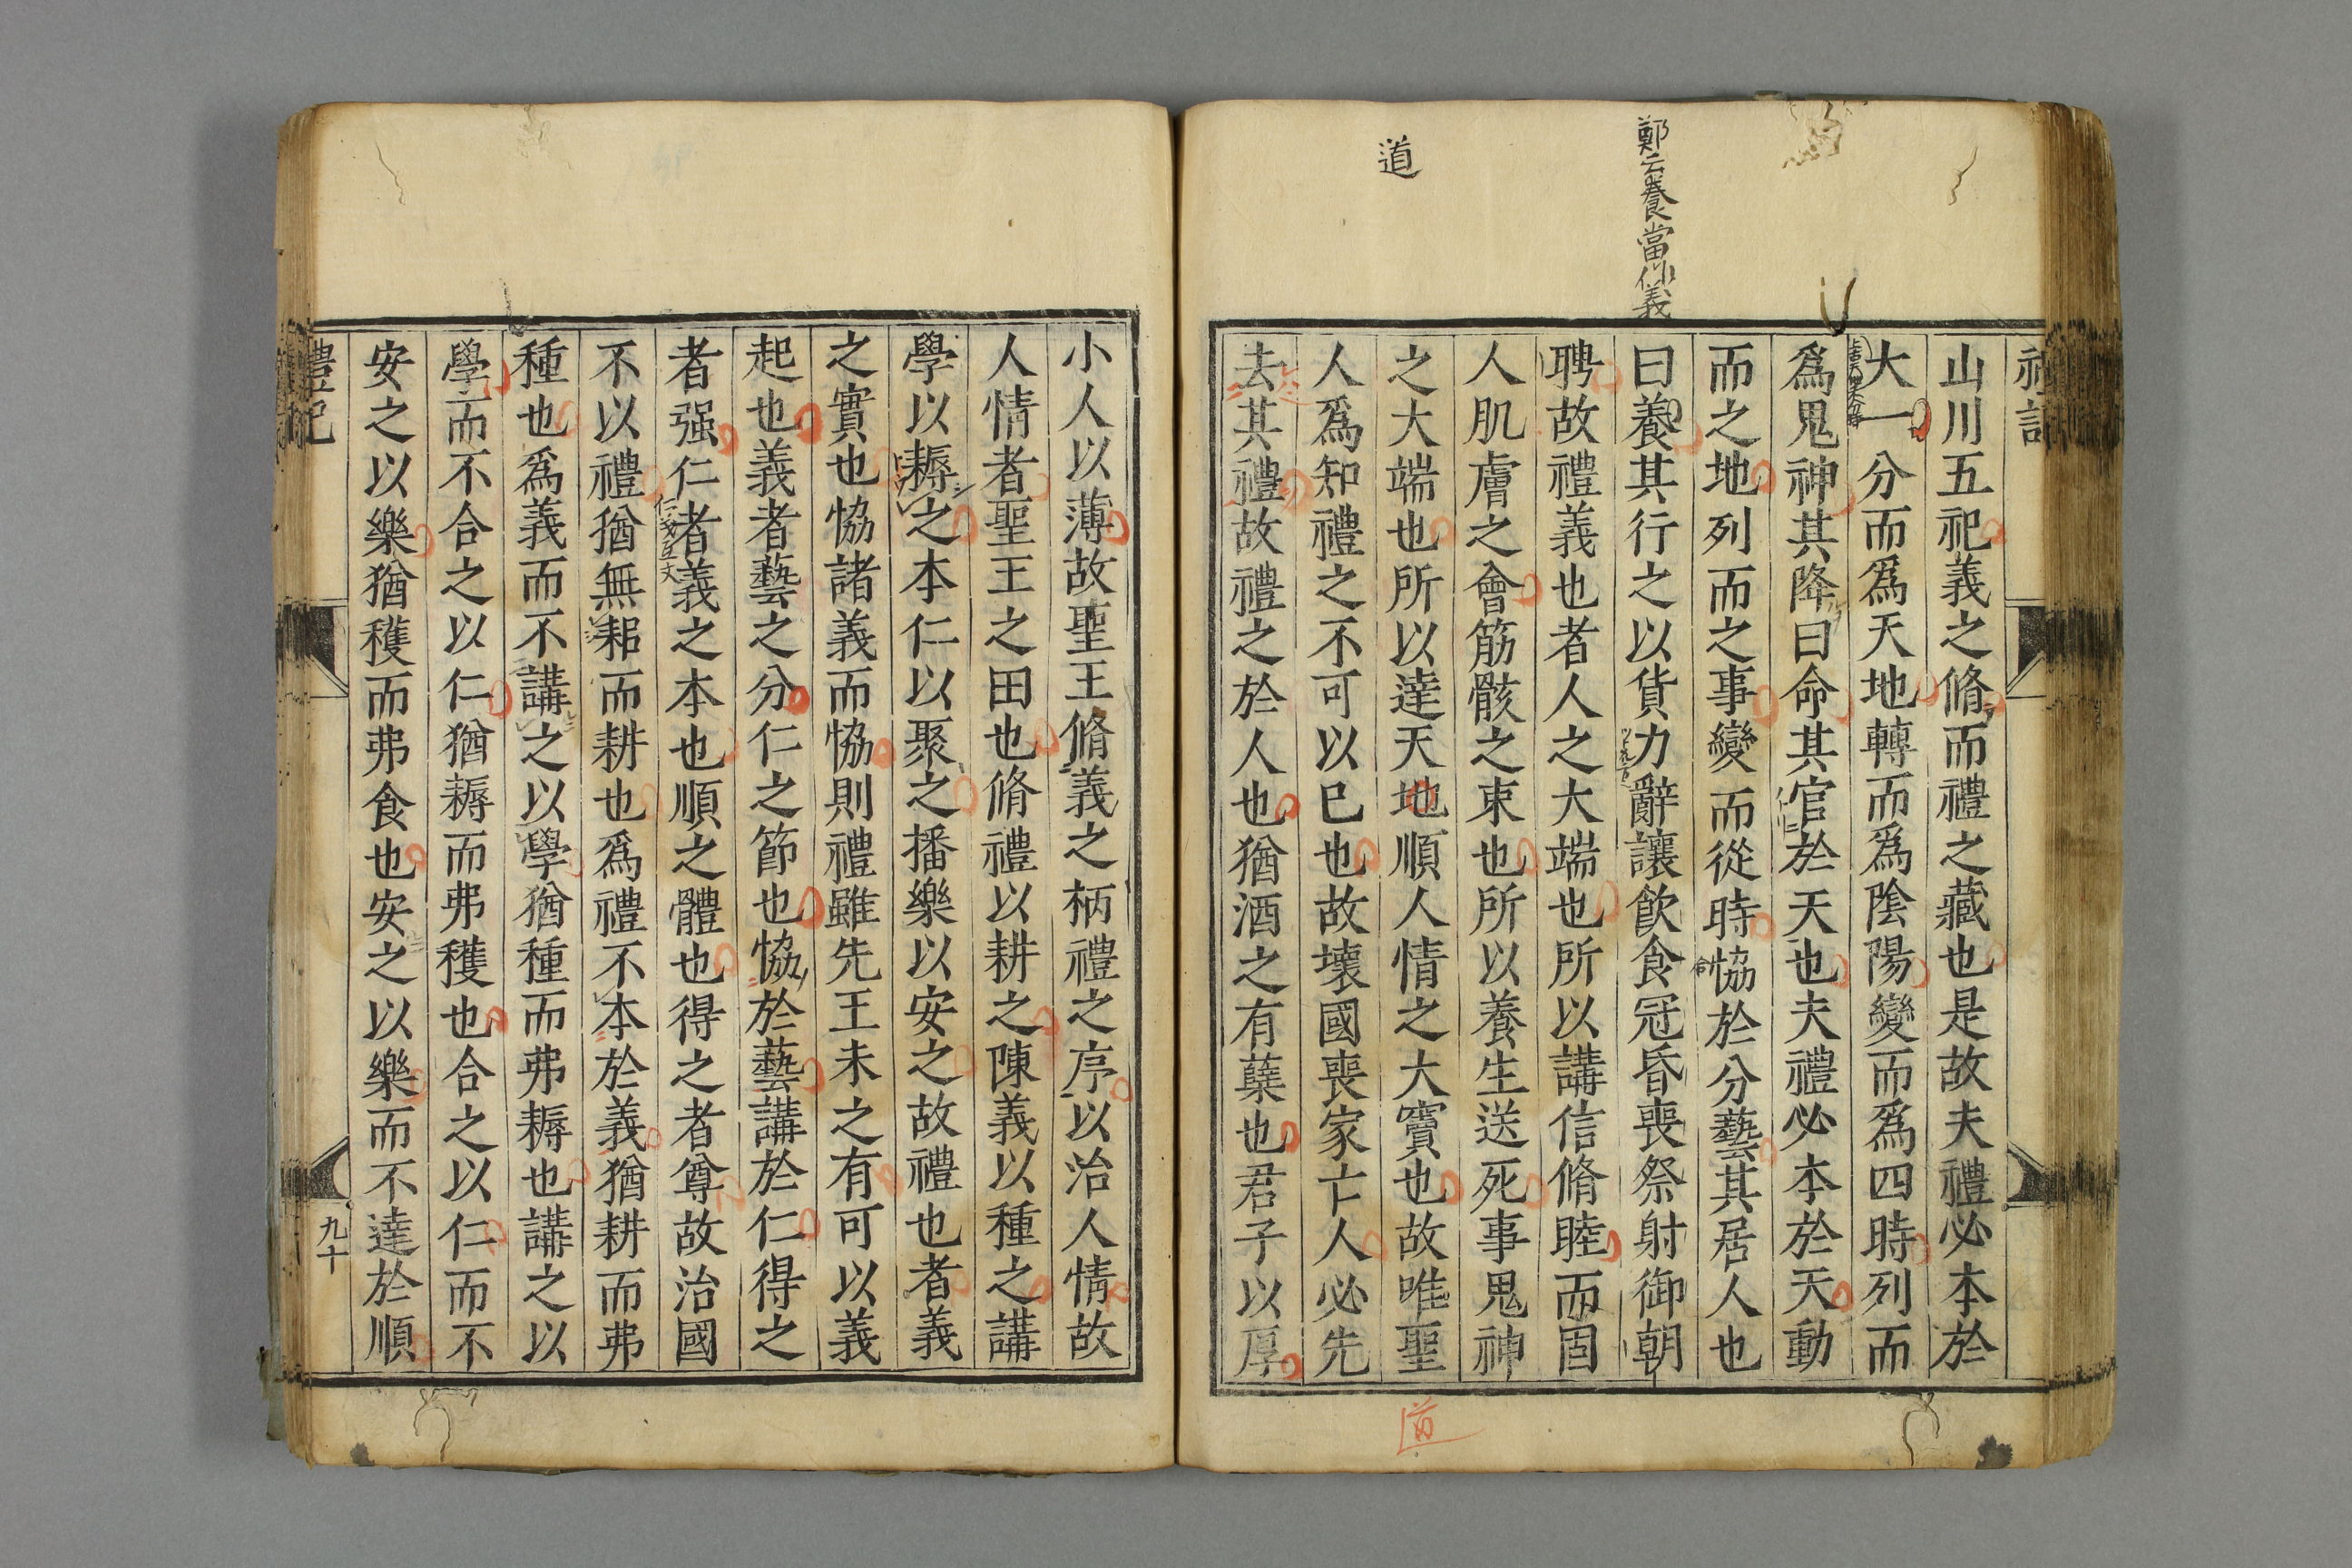 鄭云養當作義
道
山川五祀義之脩而禮之藏也是故夫禮必本於
大一分而爲天地轉而爲陰陽變而爲四時列而
爲鬼神其降曰命其官於天也夫禮必本於天動
而之地列而之事變而從時協於分藝其居人也
曰養其行之以貨力辭讓飲食冠昏喪祭射御朝
聘故禮義也者人之大端也所以講信脩睦而固
人肌膚之會筋骸之束也所以養生送死事鬼神
之大端也所以達天地順人情之大竇也故唯聖
人爲知禮之不可以已也故壞國喪家亡人必先
去其禮故禮之於人也猶酒之有蘖也君子以厚
道
小人以薄故聖王脩義之柄禮之序以治人情故
人情者聖王之田也脩禮以耕之陳義以種之講
學以耨之本仁以聚之播樂以安之故禮也者義
之實也協諸義而協則禮雖先王未之有可以義
起也義者藝之分仁之節也協於藝講於仁得之
者强仁者義之本也順之體也得之者尊故治國
仁義互文
不以禮猶無耜而耕也爲禮不本於義猶耕而弗
種也爲義而不講之以學猶種而弗耨也講之以
學而不合之以仁猶耨而弗穫也合之以仁而不
安之以樂猶穫而弗食也安之以樂而不達於順
禮記
九十